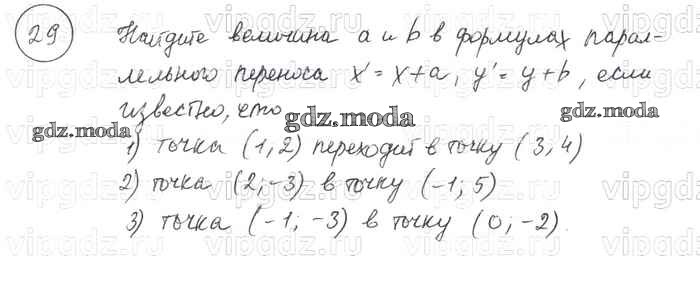 29 Найдите величина a и b в формулах парал-
лельного переноса x' = x + a, y' = y + b, если
известно, что
1) точка (1, 2) переходит в точку (3, 4)
2) точка (2; -3) в точку (-1; 5)
3) точка (-1; -3) в точку (0; -2).
gdz.moda
gdz.moda
gdz.moda
vipgdz.ru